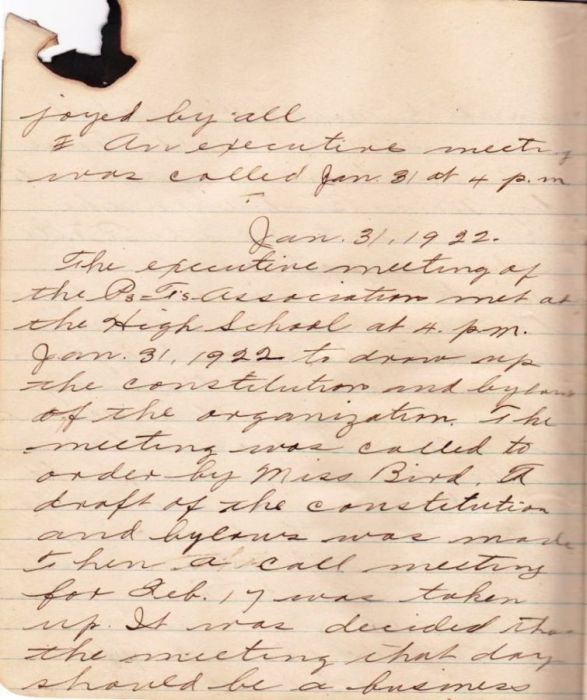 joyed by all
An executive meeting
was called Jan. 31 at 4 p.m
Jan. 31, 1922.
The executive meeting of
the Ps-Ts-Association met at
the High School at 4. p.m.
Jan. 31, 1922 to draw up
the constitution and bylaws
of the organization. The
meeting was called to
order by Miss Bird. A
draft of the constitution
and bylaws was made
Then a call meeting
for Feb. 17 was taken
up. It was decided that
the meeting that day
should be a business